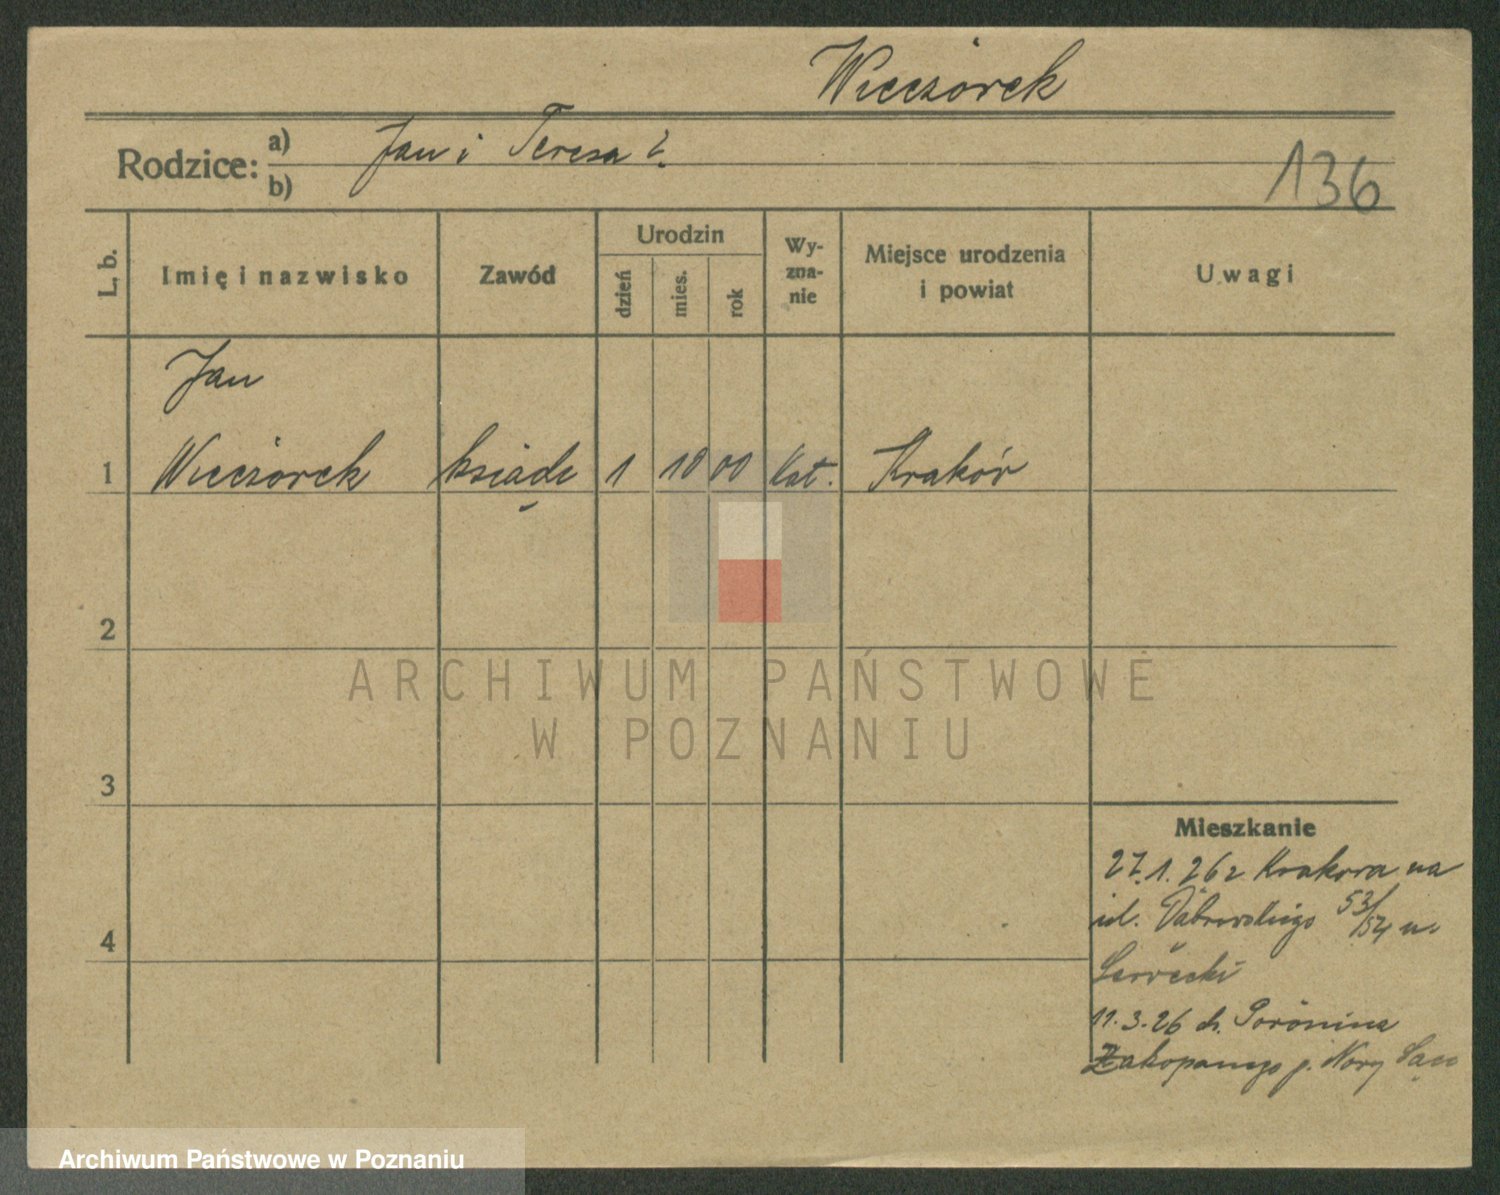 Wieczorek
Rodzice:
a) Jan i Teresa ?
b)
136
L. b.
Imię i nazwisko
Zawód
Urodzin
dzień
mies.
rok
Wy-
zna-
nie
Miejsce urodzenia
i powiat
Uwagi
Jan
1 Wieczorek ksiądz 1 10 00 kat. Kraków
2
ARCHIWUM PAŃSTWOWE
W POZNANIU
3
4
Mieszkanie
27.1.26 z Krakowa na
ul. Dąbrowskiego 53/54 u.
11.3.26 do Poronina
Zakopanego p. Nowy Sącz
Archiwum Państwowe w Poznaniu